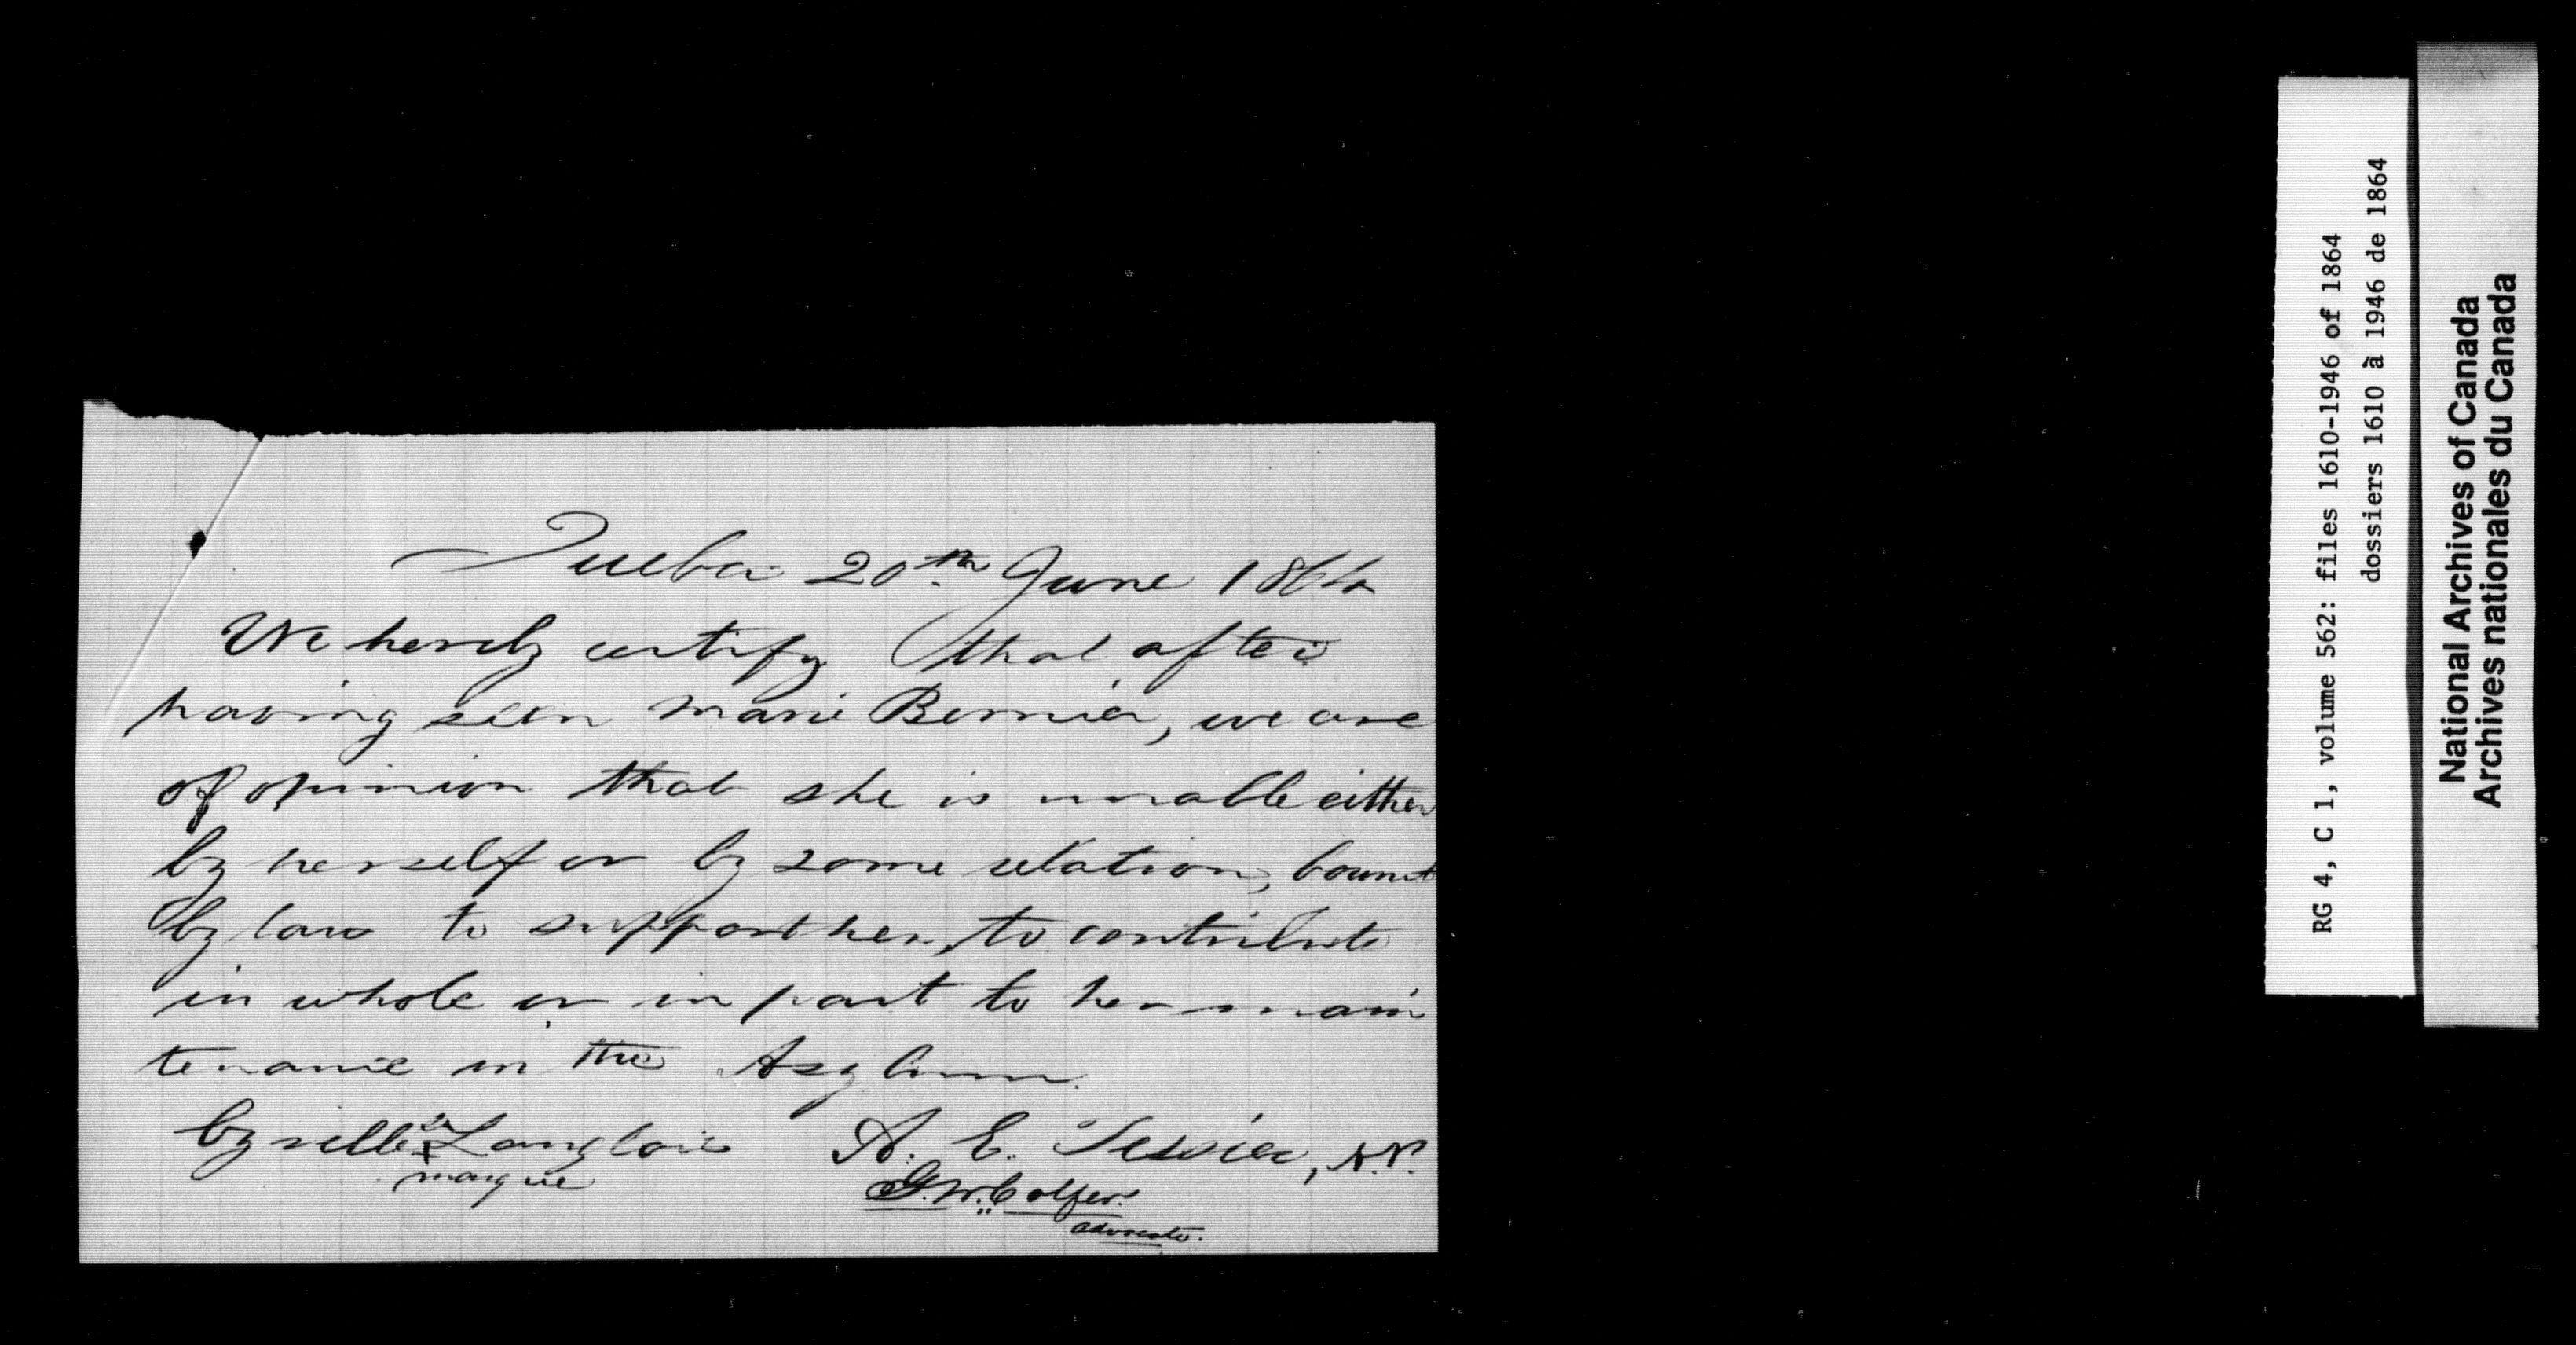 Quebec 20th June 1864
We hereby certify that after
having seen Marie Bernier, we are
of opinion that she is unable either
by herself or by some relation, bound
by law to support her, to contribute
in whole or in part to her main
tenance in the Asylum.
Langlois A. E. Tessier, N.P.
marque G. W. Colfer.
advocate.
RG 4, C 1, volume 562: files 1610-1946 of 1864
dossiers 1610 à 1946 de 1864
National Archives of Canada
Archives nationales du Canada